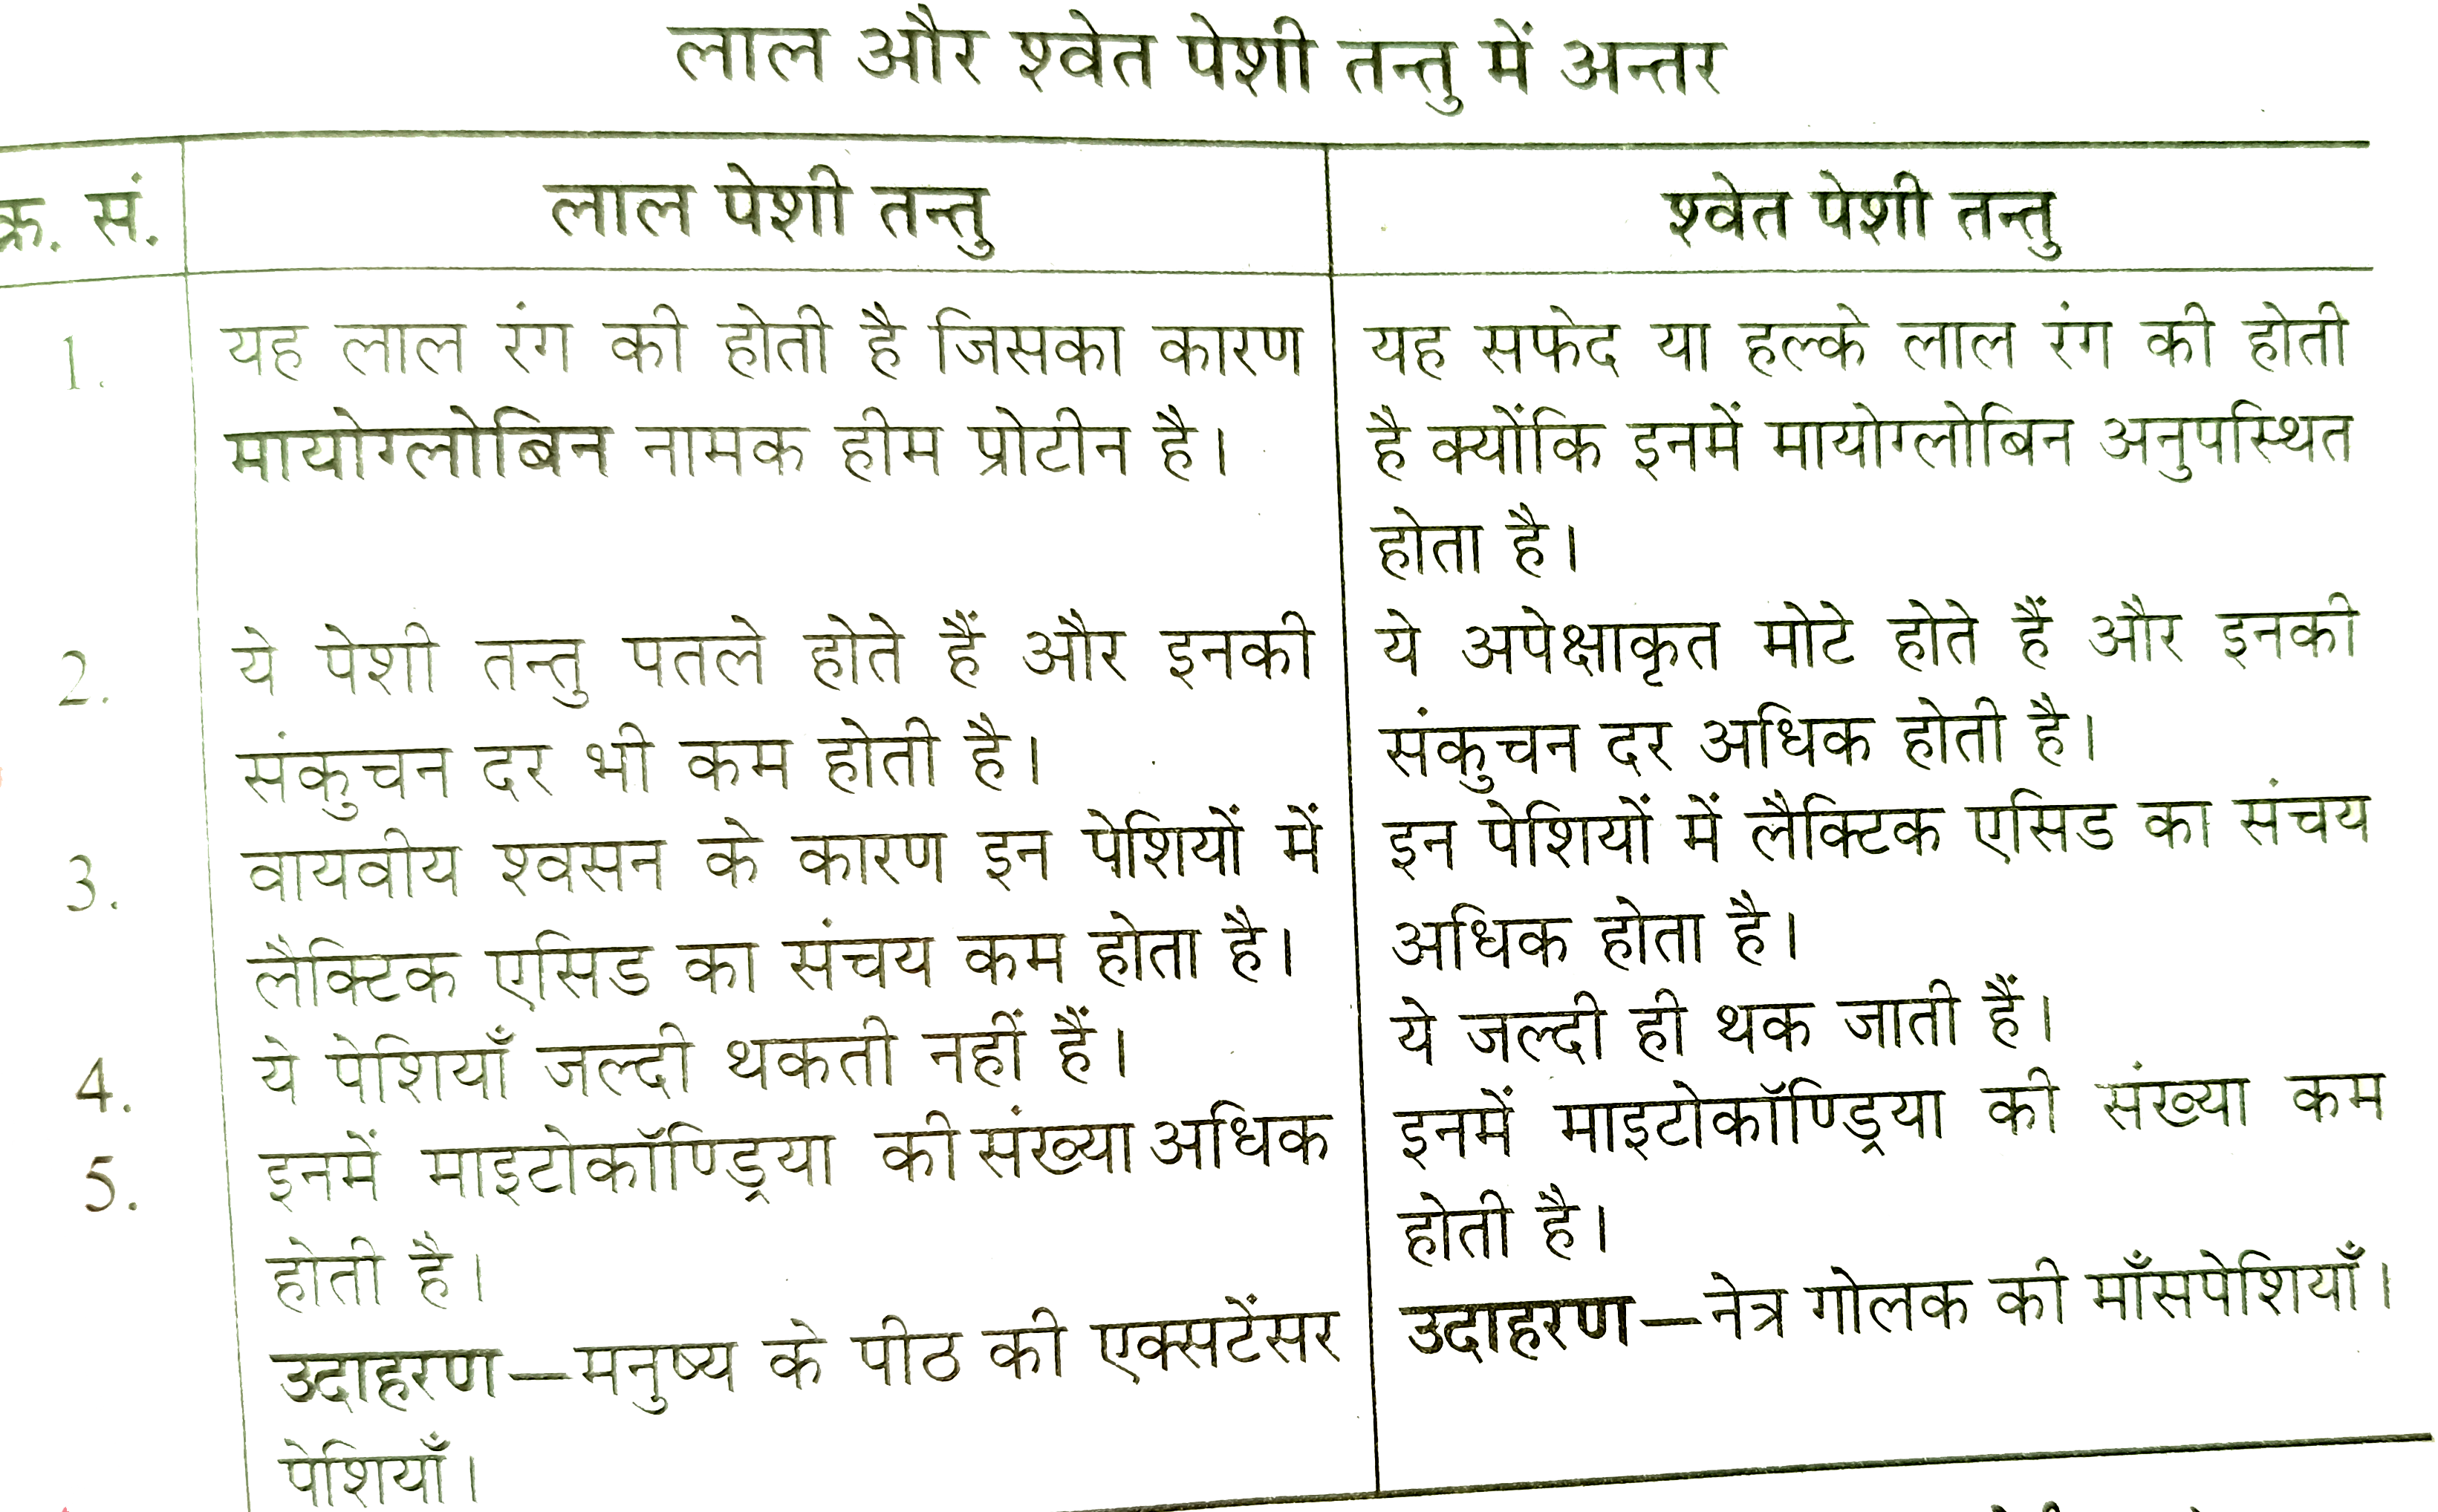 लाल और श्वेत पेशी तन्तु में अन्तर
क्र. सं.
लाल पेशी तन्तु
श्वेत पेशी तन्तु
1.
यह लाल रंग की होती है जिसका कारण
मायोग्लोबिन नामक हीम प्रोटीन है।
यह सफेद या हल्के लाल रंग की होती
है क्योंकि इनमें मायोग्लोबिन अनुपस्थित
होता है।
2.
ये पेशी तन्तु पतले होते हैं और इनकी
संकुचन दर भी कम होती है।
ये अपेक्षाकृत मोटे होते हैं और इनकी
संकुचन दर अधिक होती है।
3.
वायवीय श्वसन के कारण इन पेशियों में
लैक्टिक एसिड का संचय कम होता है।
इन पेशियों में लैक्टिक एसिड का संचय
अधिक होता है।
4.
ये पेशियाँ जल्दी थकती नहीं हैं।
ये जल्दी ही थक जाती हैं।
5.
इनमें माइटोकॉण्ड्रिया की संख्या अधिक
होती है।
इनमें माइटोकॉण्ड्रिया की संख्या कम
होती है।
उदाहरण—मनुष्य के पीठ की एक्सटेंसर
पेशियाँ।
उदाहरण—नेत्र गोलक की माँसपेशियाँ।